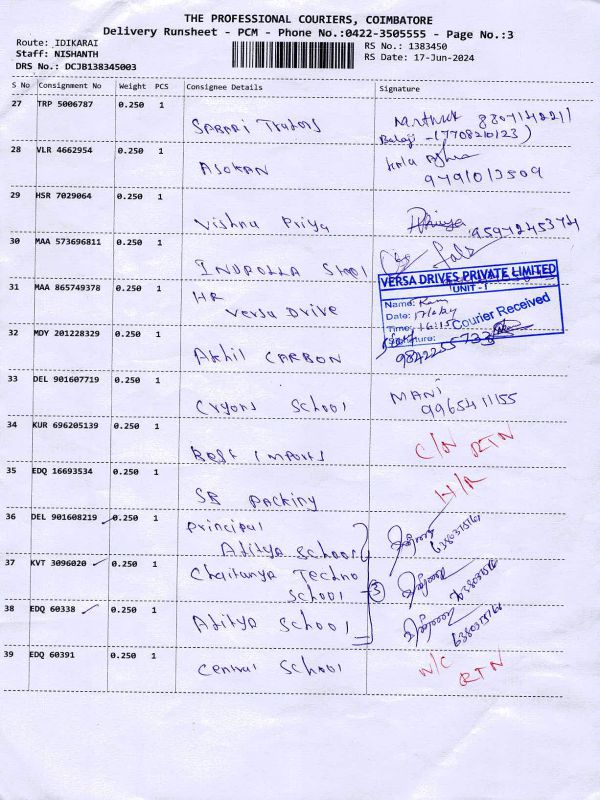 THE PROFESSIONAL COURIERS, COIMBATORE
Delivery Runsheet - PCM - Phone No.:0422-3505555 - Page No.:3
Route: IDIKARAI
Staff: NISHANTH
DRS No.: DCJB138345003
RS No.: 1383450
RS Date: 17-Jun-2024
S No Consignment No Weight PCS Consignee Details Signature
27 TRP 5006787 0.250 1
SABARI Traders
Balaji - (7708210123)
28 VLR 4662954 0.250 1
ASOKAN
9791013509
29 HSR 7029064 0.250 1
Vishnu Priya
9597245374
30 MAA 573696811 0.250 1
31 MAA 865749378 0.250 1
HR
Versa DRIVE
VERSA DRIVES PRIVATE LIMITED
UNIT - I
Name: Ram
Date: 17/6/24
Time: 16:15
Courier Received
Signature:
32 MDY 201228329 0.250 1
Akhil CARBON
9842255733
33 DEL 901607719 0.250 1
Cryons School
MANI
9965411155
34 KUR 696205139 0.250 1
Best Imports
C/N RTN
35 EDQ 16693534 0.250 1
SB Packing
H/R
36 DEL 901608219 0.250 1
Principal
Aditya School
37 KVT 3096020 0.250 1
Chaitanya Techno
School
3
38 EDQ 60338 0.250 1
Aditya School
39 EDQ 60391 0.250 1
Central School
N/C
RTN